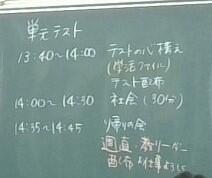 単元テスト
13:40〜14:00 テストの心構え
(学活ファイル)
テスト配布
14:00〜14:30 社会(30分)
14:35〜14:45 帰りの会
週直・教リーダー
配布